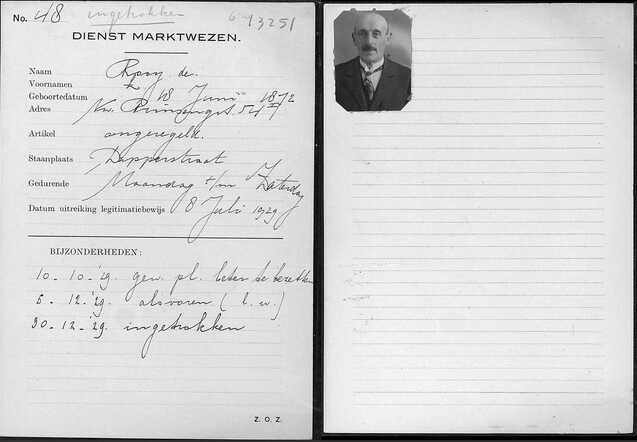 No. 48 ingetrokken 613251
DIENST MARKTWEZEN.
Naam Rooy de.
Voornamen
Geboortedatum 18 Juni 1872
Adres Nw. 54
Artikel ongeregeld.
Staanplaats Dapperstraat
Gedurende Maandag t/m Zaterdag
Datum uitreiking legitimatiebewijs 8 Juli 1929
BIJZONDERHEDEN:
10-10-'29. gew. pl. beter te bezetten
5-12-'29. alsvoren (l.w.)
30-12-'29. ingetrokken
Z.O.Z.